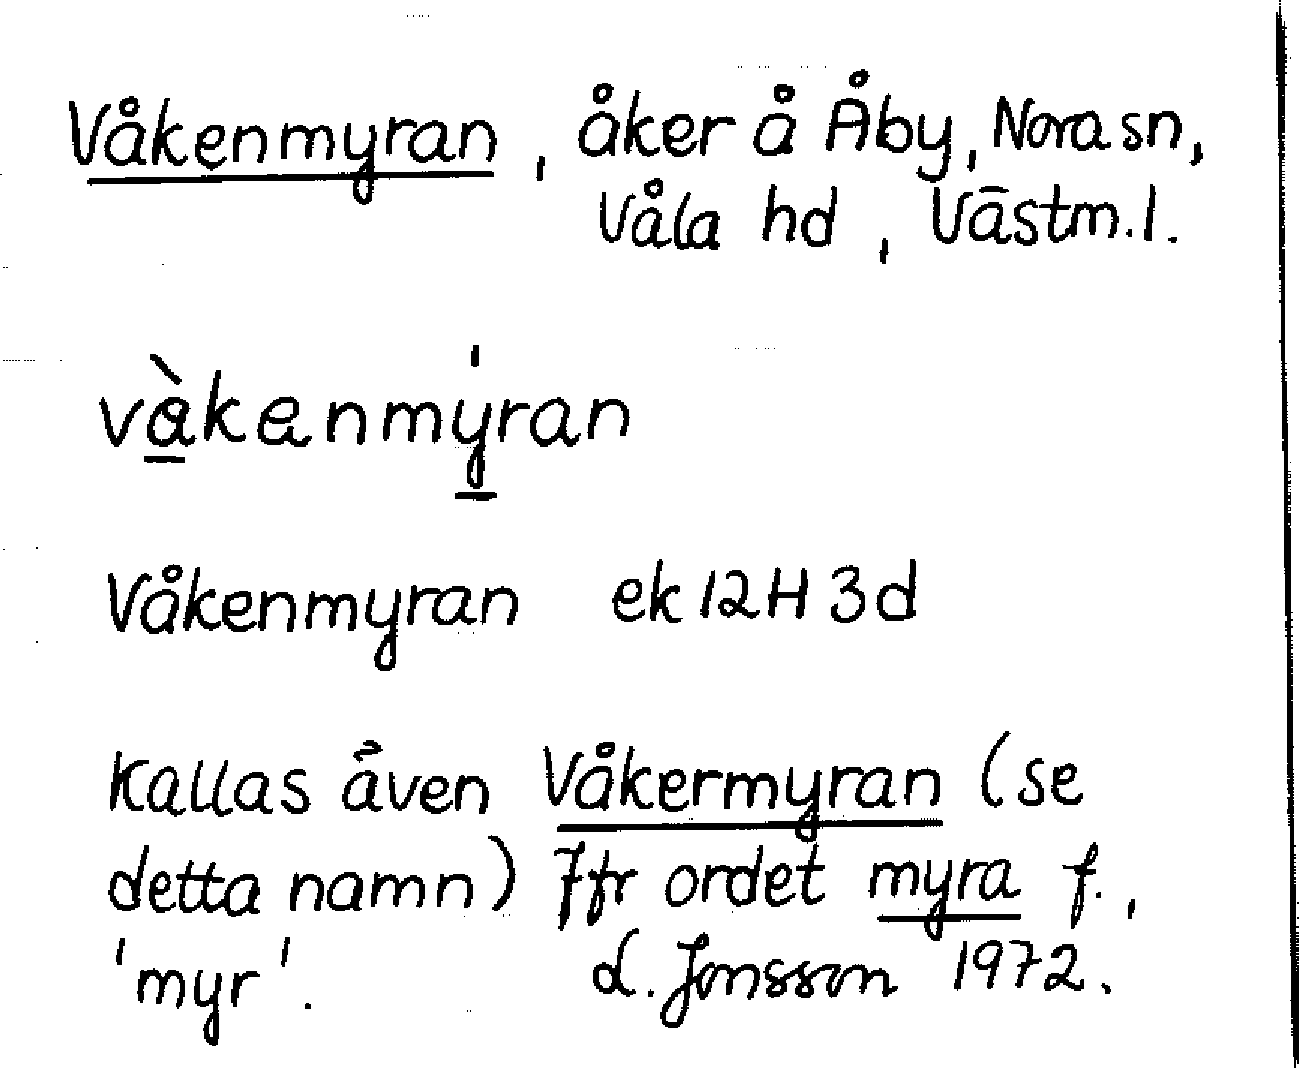 Våkenmyran, åker å Åby, Nora sn,
Våla hd, Västm.l.
vàkenmýran
Våkenmyran ek 12H 3d
Kallas även Våkermyran (se
detta namn) Jfr ordet myra f.,
'myr'. L. Jonsson 1972.